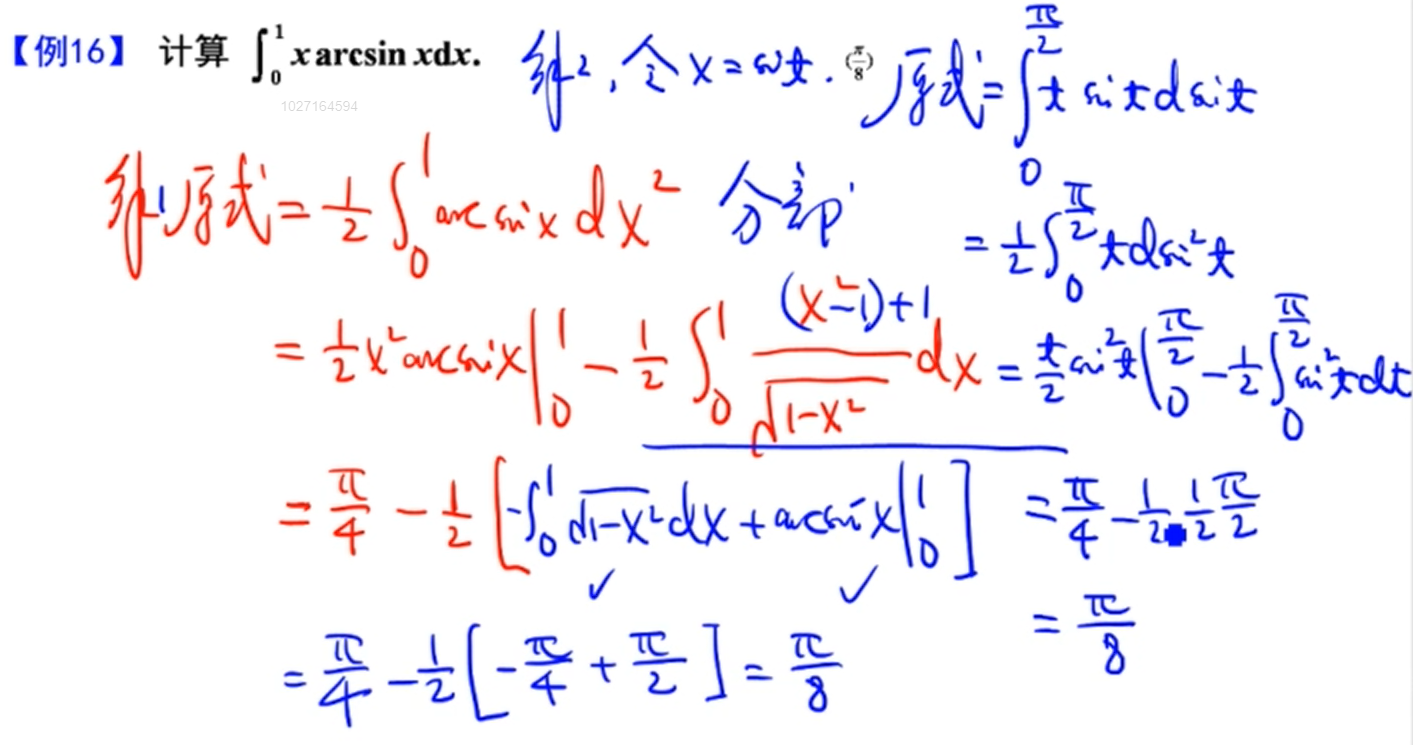 【例16】 计算 ∫₀¹ x arcsin xdx. (π/8)
1027164594
解1 原式 = 1/2 ∫₀¹ arcsin x dx² 分部
= 1/2 x² arcsin x |₀¹ − 1/2 ∫₀¹ ((x²−1)+1)/√(1−x²) dx
= π/4 − 1/2 [−∫₀¹ √(1−x²) dx + arcsin x |₀¹]
✓ ✓
= π/4 − 1/2 [−π/4 + π/2] = π/8
解2, 令 x = sin t. 原式 = ∫₀^(π/2) t sin t d sin t
= 1/2 ∫₀^(π/2) t d sin² t
= t/2 sin² t |₀^(π/2) − 1/2 ∫₀^(π/2) sin² t dt
= π/4 − 1/2 · 1/2 π/2
= π/8